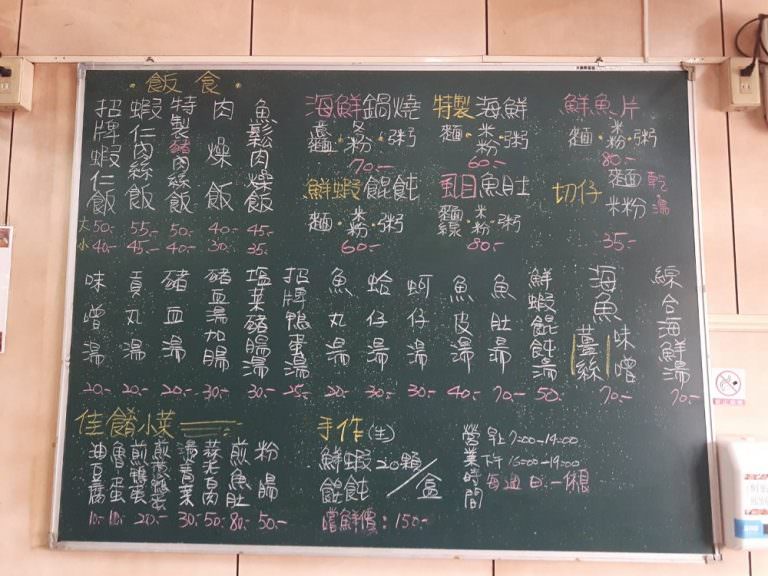 飯食
招牌蝦仁飯 大50.- 小40.-
蝦仁肉絲飯 55.- 45.-
特製豬肉絲飯 50.- 40.-
肉燥飯 40.- 30.-
魚鬆肉燥飯 45.- 35.-
海鮮鍋燒
意麵・冬粉・粥
70.-
特製海鮮
麵・米粉・粥
60.-
鮮魚片
麵・米粉・粥
80.-
鮮蝦餛飩
麵・米粉・粥
60.-
虱目魚肚
麵線・米粉・粥
80.-
切仔 麵 米粉 乾 湯
35.-
味噌湯 20.-
貢丸湯 20.-
豬血湯 20.-
豬血湯加腸 30.-
塩菜豬腸湯 30.-
招牌鴨蛋湯 25.-
魚丸湯 20.-
蛤仔湯 30.-
蚵仔湯 30.-
魚皮湯 40.-
魚肚湯 70.-
鮮蝦餛飩湯 50.-
海魚 薑絲 味噌 70.-
綜合海鮮湯 70.-
佳餚小菜
油豆腐 10.-
魯蛋 10.-
煎鴨蛋
20.-
燙青菜 30.-
蒜泥白肉 50.-
煎魚肚 80.-
粉腸 50.-
手作(生)
鮮蝦餛飩 20顆/盒
嚐鮮價:150.-
營業時間
早上7:00-14:00
下午16:00-19:00
每週日.一休息